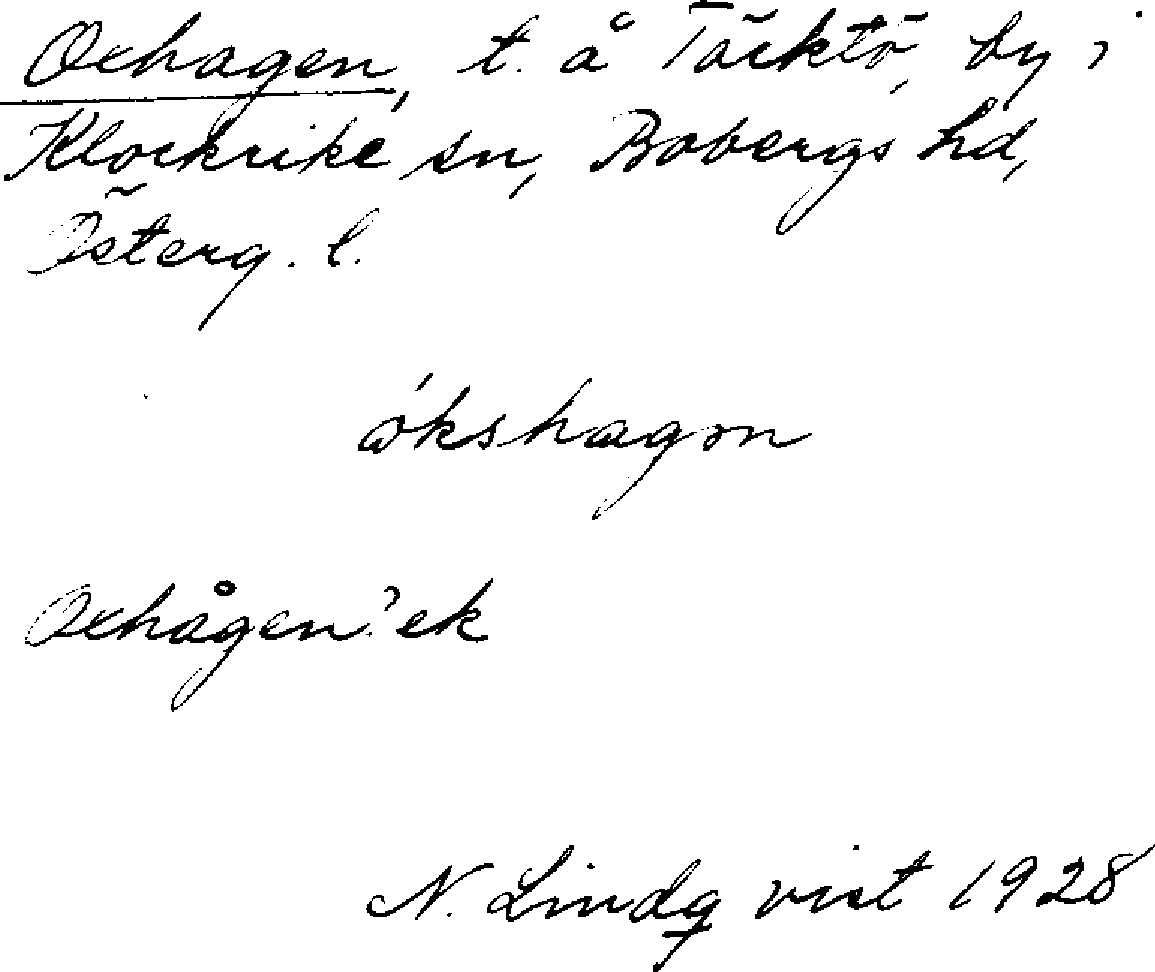 Oxhagen, t. å Täcktö, by i
Klockrike sn, Bobergs hd,
Österg. l.
ókshagən
Oxhågen? ek
N. Lindqvist 1928